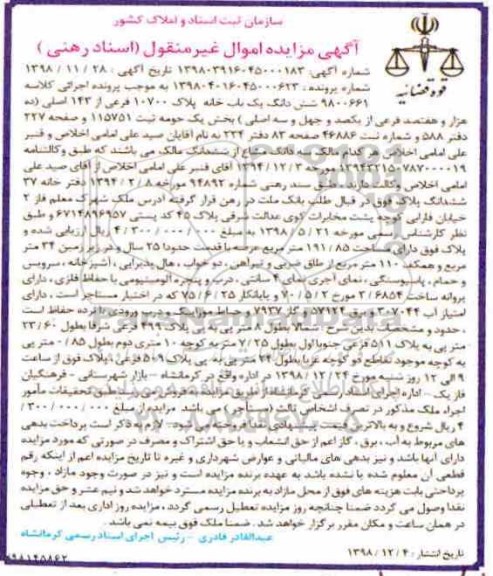 سازمان ثبت اسناد و املاک کشور
آگهی مزایده اموال غیرمنقول (اسناد رهنی)
قوه قضائیه
شماره آگهی: ۱۳۹۸۰۳۹۱۶۰۴۵۰۰۰۱۸۳ تاریخ آگهی: ۲۸ / ۱۱ / ۱۳۹۸
شماره پرونده: ۱۳۹۸۰۴۰۱۶۰۴۵۰۰۰۶۲۳ به موجب پرونده اجرائی کلاسه
۹۸۰۰۶۶۱ شش دانگ یک باب خانه پلاک ۱۰۷۰۰ فرعی از ۱۴۳ اصلی (ده
هزار و هفتصد فرعی از یکصد و چهل و سه اصلی) بخش یک حومه ثبت ۱۱۵۷۵۱ و صفحه ۲۲۷
دفتر ۵۸۸ و شماره ثبت ۴۶۸۸۶ صفحه ۸۳ دفتر ۲۳۴ به نام آقایان صید علی امامی اخلاص و قنبر
علی امامی اخلاص هر کدام مالک سه دانگ مشاع از ششدانگ مالک می باشند که طبق وکالتنامه
مورخه ۳ / ۱۲ / ۱۳۹۴ آقای قنبر علی امامی اخلاص از آقای صید علی
امامی اخلاص وکالت دارند. طبق سند رهنی شماره ۹۴۸۹۲ مورخه ۸ / ۳ / ۱۳۹۴ دفتر خانه ۳۷
ششدانگ پلاک فوق در قبال طلب بانک ملت در رهن قرار گرفته آدرس ملک شهرک معلم فاز ۲
خیابان فارابی کوچه پشت مخابرات کوی عدالت شرقی پلاک ۴۵ کد پستی ۶۷۱۴۸۹۶۹۵۷ و طبق
نظر کارشناس رسمی مورخه ۲۱ / ۵ / ۱۳۹۸ به مبلغ ۰۰۰ / ۰۰۰ / ۳۰۰ / ۴ ریال ارزیابی شده و
پلاک فوق دارای مساحت ۸۵ / ۱۹۱ متر مربع عرصه با قدمت حدودا ۲۵ سال و در زیر زمین ۳۴ متر
مربع و همکف ۱۱۰ متر مربع از طاق ضربی و تیرآهن، دو خواب، هال پذیرایی، آشپزخانه، سرویس
و حمام، پاسیو سنگی، نمای آجری نمای ۴ سانتی، درب و پنجره آلومینیومی با حفاظ فلزی، دارای
پروانه ساخت ۶۸۵۴ / ۳ مورخ ۲ / ۵ / ۷۰ و پایانکار ۲۵ / ۶ / ۷۵ که در اختیار مستاجر است، دارای
امتیاز آب ۲۰۷۰۴۴ برق ۵۷۱۲۴ گاز ۷۹۳۷ و حیاط موزاییک و درب ورودی با نرده حفاظ است
، حدود و مشخصات به این شرح: شمالا بطول ۸ متر پی به پی پلاک ۴۹۹ فرعی شرقا بطول ۶۰ / ۲۳
متر پی به پلاک ۵۱۱ فرعی جنوبا اول بطول ۲۵ / ۷ متر به کوچه ۱۰ متری دوم بطول ۸۵ / ۰ متر پی
به کوچه موجود تقاطع دو کوچه غربا بطول ۲۴ متر پی به پی پلاک ۵۰۹ فرعی؛ پلاک فوق از ساعت
۹ الی ۱۲ روز شنبه مورخ ۲۴ / ۱۲ / ۱۳۹۸ در اداره واقع در کرمانشاه – بازار شهرستانی – فرهنگیان
فاز یک – اداره اجرای اسناد رسمی کرمانشاه از طریق مزایده به فروش می رسد طبق تحقیقات مأمور
اجراء ملک مذکور در تصرف اشخاص ثالث (مستأجر) می باشد. مزایده از مبلغ ۰۰۰ / ۰۰۰ / ۳۰۰ /
۴ ریال شروع و به بالاترین قیمت پیشنهادی نقدا فروخته می شود. لازم به ذکر است پرداخت بدهی
های مربوط به آب، برق، گاز اعم از حق انشعاب و یا حق اشتراک و مصرف در صورتی که مورد مزایده
دارای آنها باشد و نیز بدهی های مالیاتی و عوارض شهرداری و غیره تا تاریخ مزایده اعم از اینکه رقم
قطعی آن معلوم شده یا نشده باشد به عهده برنده مزایده است و نیز در صورت وجود مازاد، وجوه
پرداختی بابت هزینه های فوق از محل مازاد به برنده مزایده مسترد خواهد شد و نیم عشر و حق مزایده
نقدا وصول می گردد ضمنا چنانچه روز مزایده تعطیل رسمی گردد، مزایده روز اداری بعد از تعطیلی
در همان ساعت و مکان مقرر برگزار خواهد شد. ضمنا ملک فوق بیمه نمی باشد.
عبدالقادر قادری – رئیس اجرای اسناد رسمی کرمانشاه
تاریخ انتشار: ۴ / ۱۲ / ۱۳۹۸